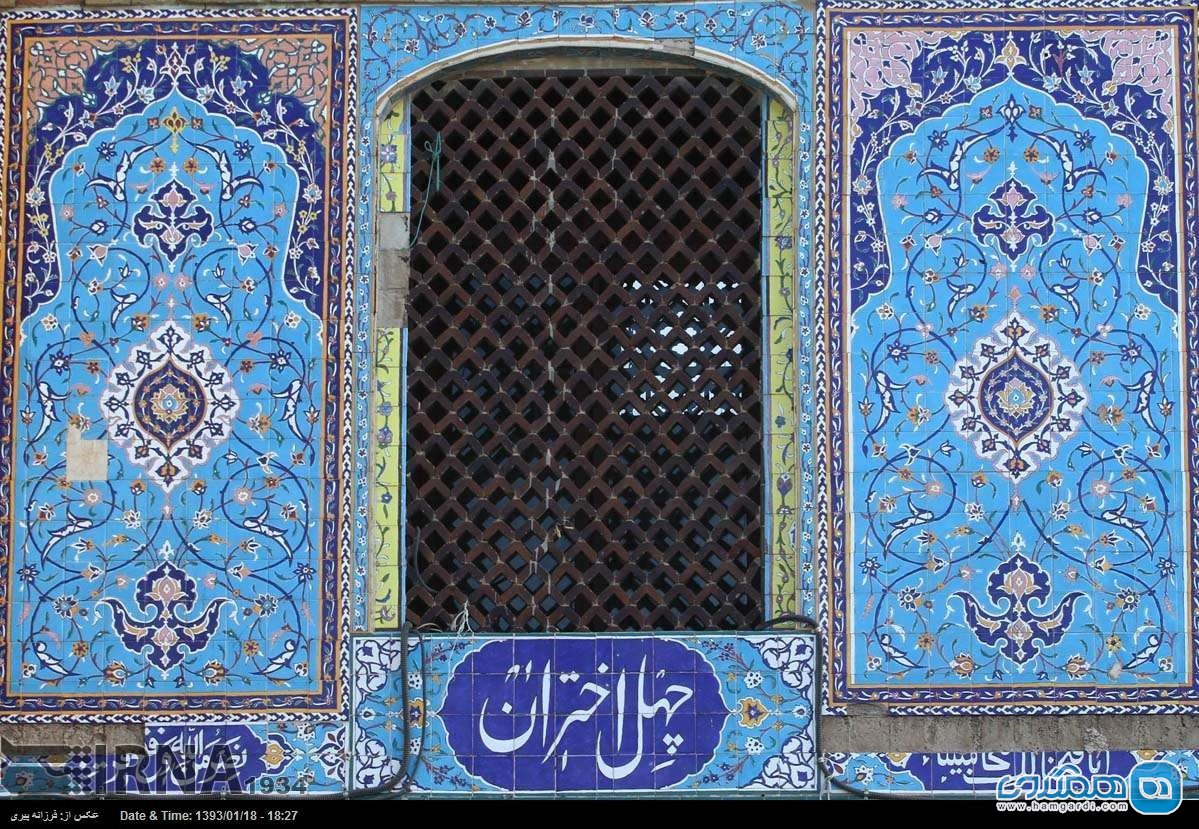 چهل اختران
IRNA
1934
همگردی
www.hamgardi.com
عکس از: فرزانه پیری Date & Time: 1393/01/18 - 18:27